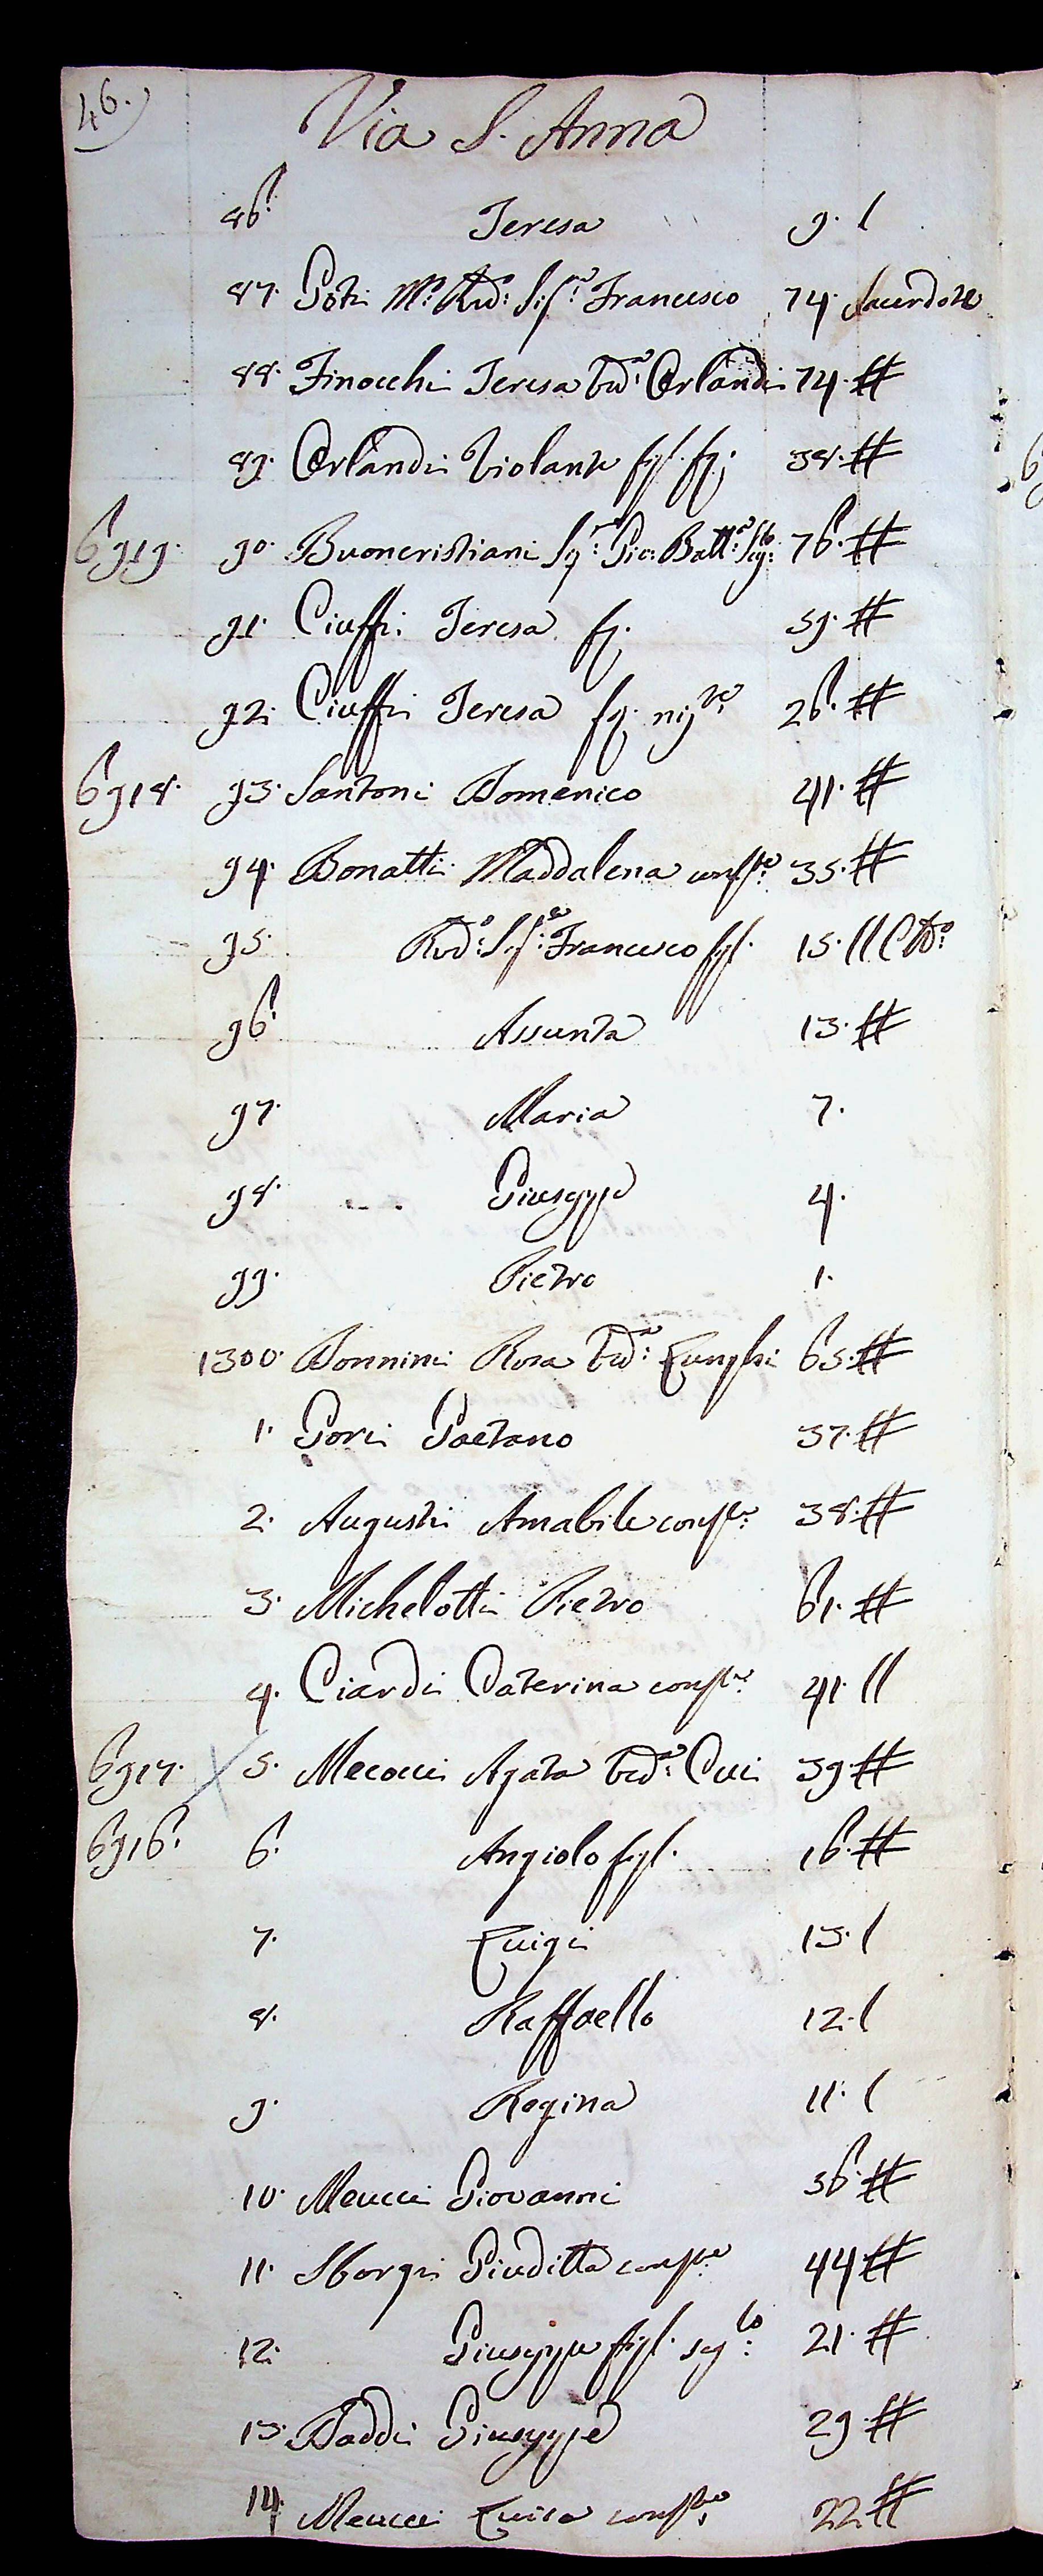 46.
Via S. Anna
86. Teresa 9. /
87. Goti M.to Rvd.o Sig.re Francesco 74. Sacerdote
88. Finocchi Teresa Ved.a Orlandi 74. #
89. Orlandi Violante figl. fg. 38. #
6919. 90. Buoncristiani Sg.r Gio. Batt.a Sco. 76. #
91. Ciuffi Teresa fg. 59. #
92. Ciuffi Teresa fg. nip.te 26. #
6918. 93. Santoni Domenico 41. #
94. Bonatti Maddalena cons.te 35. #
95. Rvd.o Sig.re Francesco figl. 15. // C.co
96. Assunta 13. #
97. Maria 7.
98. Giuseppe 4.
99. Pietro 1.
1300. Bonnini Rosa Ved.a Lunghi 65. #
1. Gori Gaetano 37. #
2. Augusti Amabile cons.te 38. #
3. Michelotti Pietro 61. #
4. Ciardi Caterina cons.te 41. //
6917. X 5. Mecocci Agata Ved.a Cui 39. #
6916. 6. Angiolo figl. 16. #
7. Luigi 13. /
8. Raffaello 12. /
9. Regina 11. /
10. Meucci Giovanni 36. #
11. Sborgi Giuditta cons.te 44 #
12. Giuseppe figl. sg.lo 21. #
13. Baddi Giuseppe 29. #
14. Meucci Luisa cons.te 22 #